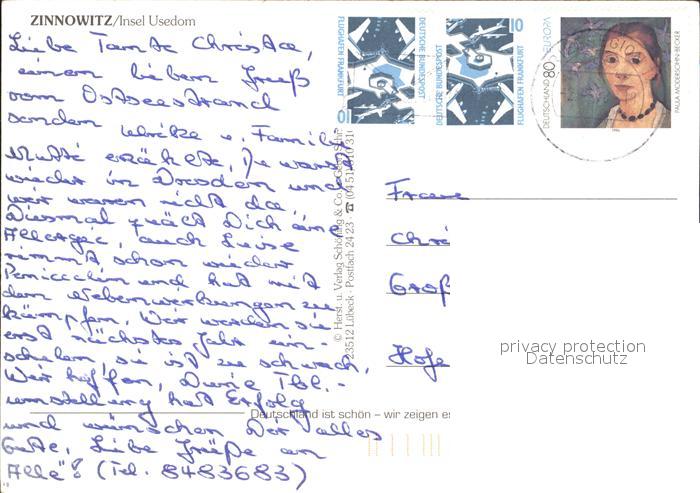 ZINNOWITZ/Insel Usedom
Liebe Tante Christa,
einen lieben Gruß
vom Ostseestrand
senden Ulrike u. Familie
Mutti erzählte, Du warst
wieder in Dresden und
wir waren nicht da.
Diesmal quält Dich eine
Allergie, auch Luise
nimmt schon wieder
Penicillin und hat mit
den Nebenwirkungen zu
kämpfen. Wir werden sie
erst nächstes Jahr ein-
schulen, sie ist zu schwach.
Wir hoffen, Deine Tbl.-
umstellung hat Erfolg
und wünschen Dir alles
Gute, Liebe Grüße an
Alle! (Tel. 8483683)
FLUGHAFEN FRANKFURT
DEUTSCHE BUNDESPOST
10
DEUTSCHE BUNDESPOST
FLUGHAFEN FRANKFURT
10
DEUTSCHLAND 80 EUROPA
PAULA MODERSOHN-BECKER
1996
© Herst. u. Verlag Schöning & Co.
23512 Lübeck · Postfach 24 23
Frau
Chri
Groß
Hofe
privacy protection
Datenschutz
Deutschland ist schön – wir zeigen es